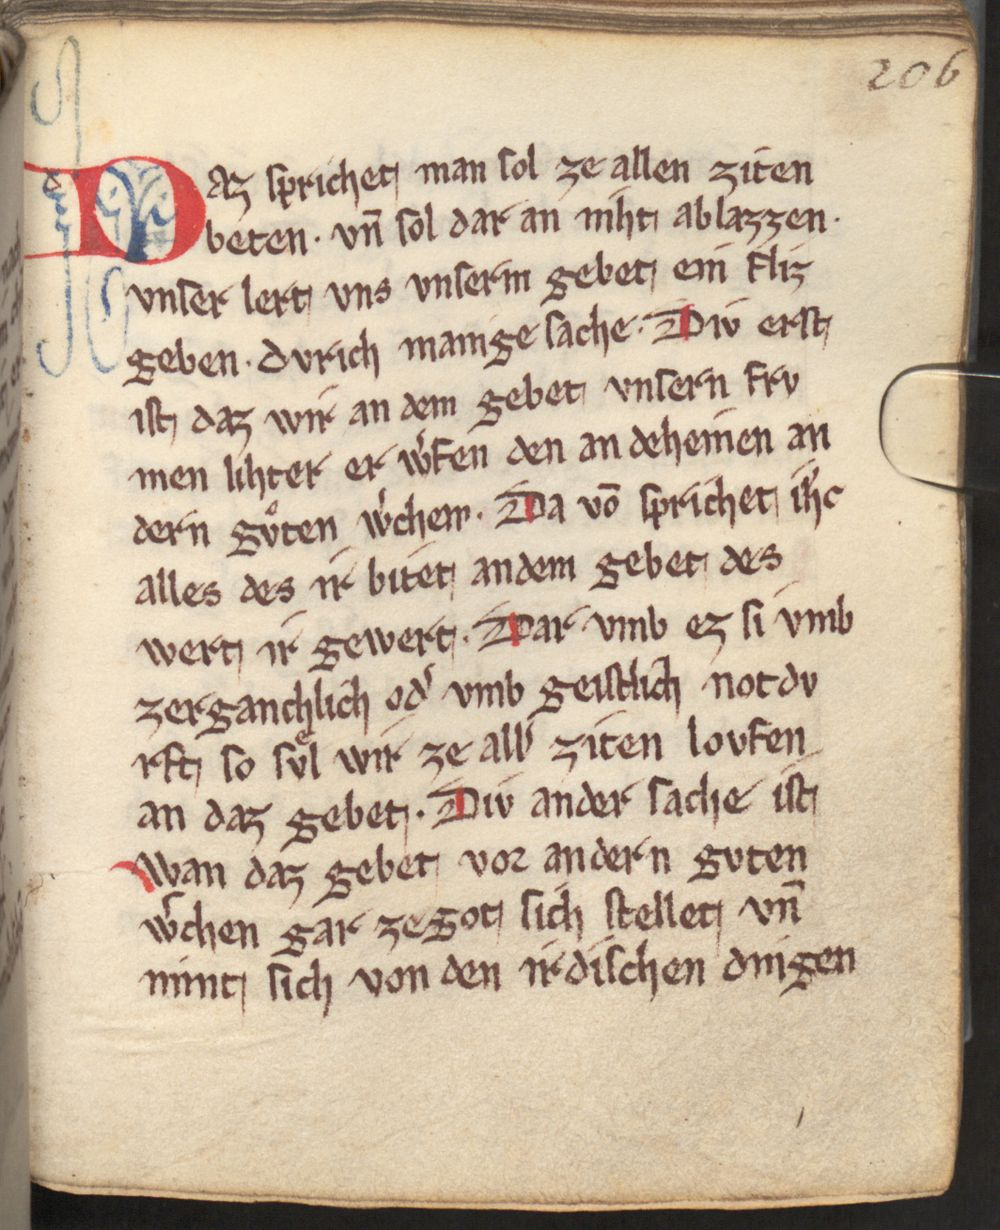 206
Daz sprichet man sol ze allen ziten
beten · vn̄ sol dar an niht ablazzen ·
vnser lert vns vnserm gebet ein fliz
geben · dvrich manige sache · Div erst
ist daz wir an dem gebet vnsern frv
men lihter er w͛fen den an deheinen an
dern gvͦten w͛chem · Da vō sprichet ih͛c
alles des ir bitet an dem gebet des
wert ir gewert · Dar vmb ez si vmb
zerganchlich od͛ vmb geistlich notdv
rft so svͤl wir ze all͛ ziten lovfen
an daz gebet · Div ander sache ist
Wan daz gebet vor andern gvten
w͛chen gar ze got sich stellet vn̄
nimt sich von den irdischen dingen